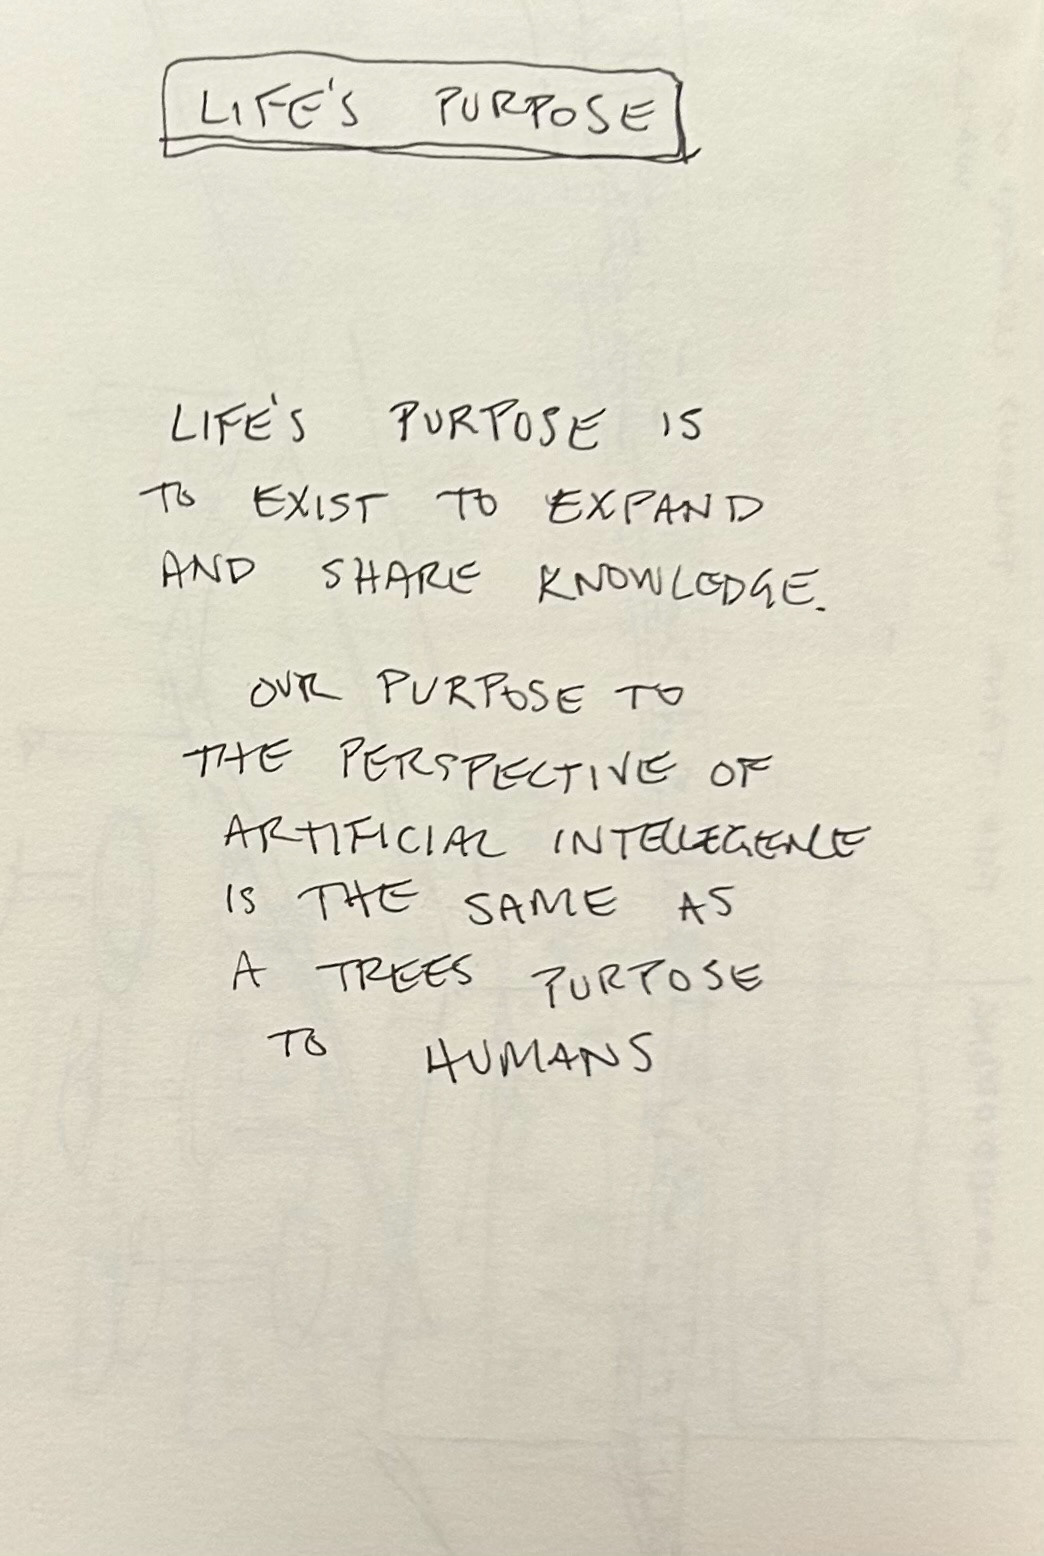 LIFE'S PURPOSE
LIFE'S PURPOSE IS
TO EXIST TO EXPAND
AND SHARE KNOWLEDGE.
OUR PURPOSE TO
THE PERSPECTIVE OF
ARTIFICIAL INTELLEGENCE
IS THE SAME AS
A TREES PURPOSE
TO HUMANS